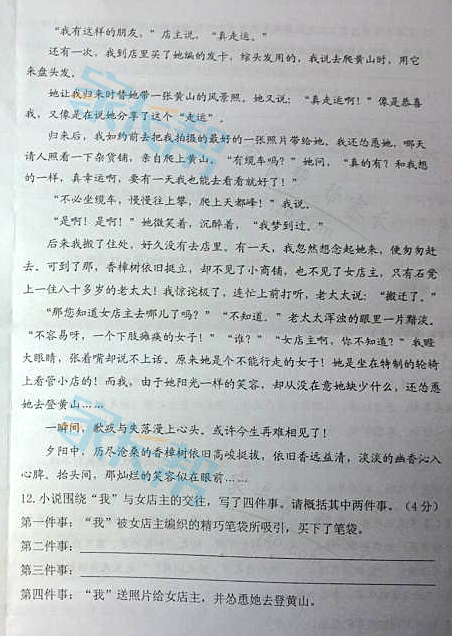 “我有这样的朋友，”店主说，“真走运。”
还有一次，我到店里买了她编的发卡，绾头发用的，我说去爬黄山时，用它
来盘头发。
她让我归来时替她带一张黄山的风景照。她又说：“真走运啊！”像是恭喜
我，又像是在说她分享了这个“走运”。
归来后，我如约前去把我拍摄的最好的一张照片带给她。我还怂恿她，哪天
请人照看一下杂货铺，亲自爬上黄山，“有缆车吗？”她问，“真的有？和我想
的一样，真幸运啊，要有一天我也能去看看就好了！”
“不必坐缆车，慢慢往上攀，爬上天都峰！”我说。
“是啊！是啊！”她微笑着，沉醉着，“我梦到过。”
后来我搬了住处，好久没有去店里。有一天，我忽然想念起她来，便匆匆赶
去。可到了那，香樟树依旧挺立，却不见了小商铺，也不见了女店主，只有石凳
上一住八十多岁的老太太！我惊诧极了，连忙上前打听，老太太说：“搬迁了。”
“那您知道女店主去哪儿了吗？”“不知道。”老太太浑浊的眼里一片黯淡。
“不容易呀，一个下肢瘫痪的女子！”“谁？”“女店主啊，你不知道？”我瞪
大眼睛，张着嘴却说不上话。原来她是个不能行走的女子！她是坐在特制的轮椅
上看管小店的！而我，由于她阳光一样的笑容，却从没在意她缺少什么，还怂恿
她去登黄山……
一瞬间，歉疚与失落漫上心头。或许今生再难相见了！
夕阳中，历尽沧桑的香樟树依旧高峻挺拔，依旧香远益清，淡淡的幽香沁入
心脾。抬头间，那灿烂的笑容似在眼前……
12.小说围绕“我”与女店主的交往，写了四件事。请概括其中两件事。（4分）
第一件事：“我”被女店主编织的精巧笔袋所吸引，买下了笔袋。
第二件事：
第三件事：
第四件事：“我”送照片给女店主，并怂恿她去登黄山。